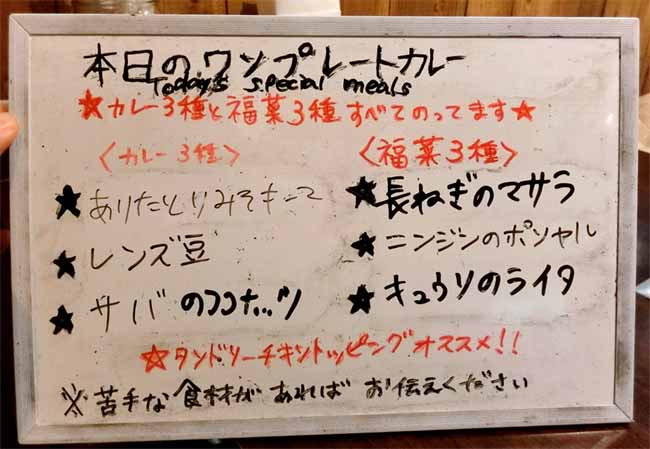 本日のワンプレートカレー
Today's special meals
★カレー3種と福菜3種すべてのってます★
〈カレー3種〉
〈福菜3種〉
★ありたどりみそキーマ
★レンズ豆
★サバのココナッツ
★長ねぎのマサラ
★ニンジンのポリヤル
★キュウリのライタ
☆タンドリーチキントッピングオススメ!!
※苦手な食材があればお伝えください